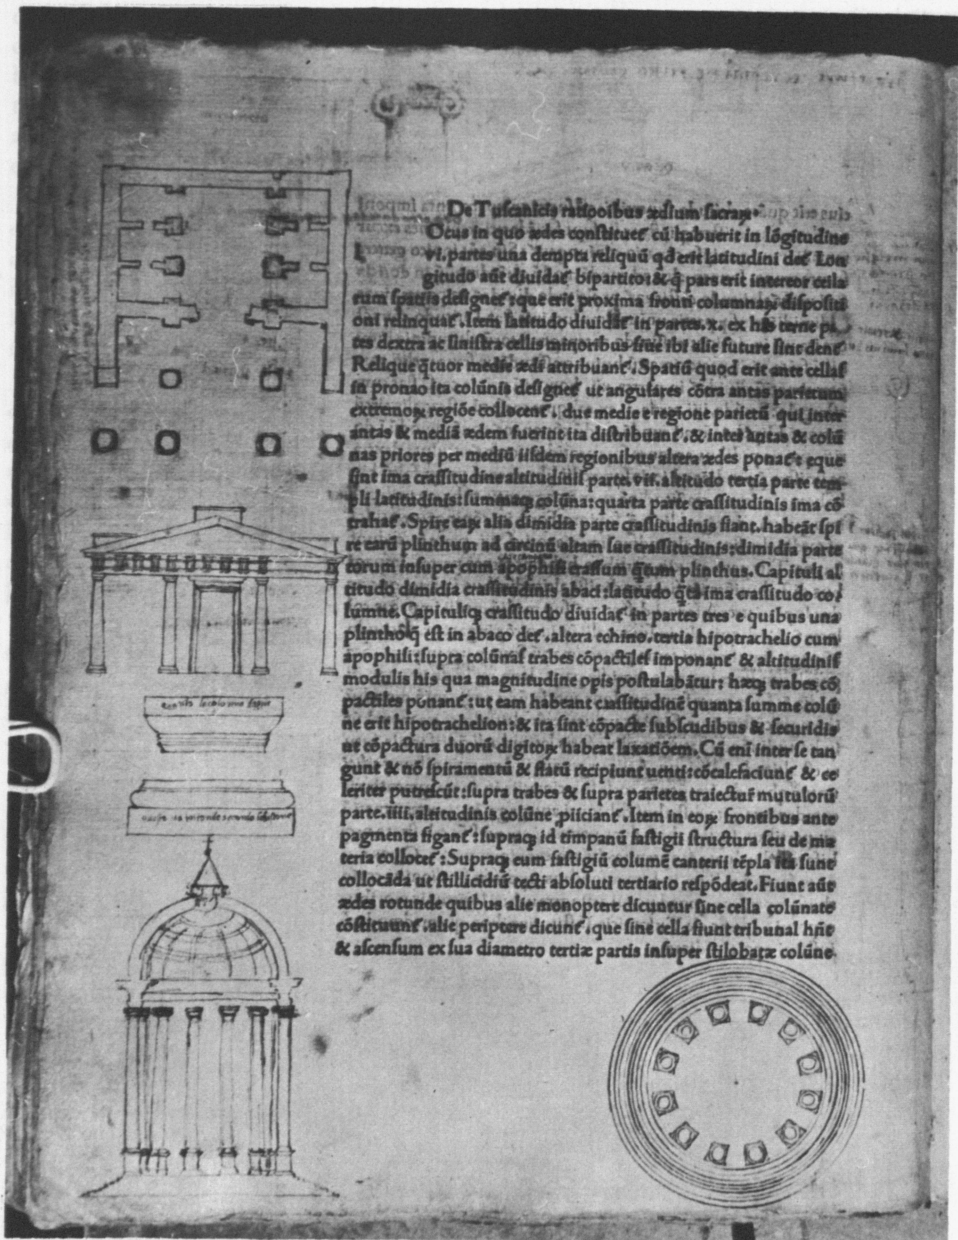 De Tuscanicis rationibus ædium sacraꝝ.
Ocus in quo ædes constituet᷒ cū habuerit in lōgitudine
vi. partes una dempta reliquū qd erit latitudini det᷒ Lon
gitudo aūt diuidat᷒ bipartito: & q̄ pars erit intereor cella
rum spatiis designet᷒: que erit proxima fronti columnaꝝ dispositi
oni relinquat᷒. Item latitudo diuidat᷒ in partes. x. ex his terne pa
tes dextra ac sinistra cellis minoribus siue ibi alie future sint dent᷒
Relique q̄tuor medie ædi attribuant᷒. Spatiū quod erit ante cellas
in pronao ita colūnis designet᷒ ut angulares cōtra antas parietum
extremoꝝ regiōe collocent᷒. due medie e regione parietū qui inter
antas & mediā ædem fuerint ita distribuant᷒. & inter antas & colū
nas priores per mediū iisdem regionibus altera ædes ponat᷒: eque
sint ima crassitudine altitudinis parte. vii. altitudo tertia parte tem
pli latitudinis: summaqꝫ colūna: quarta parte crassitudinis ima cō
trahat᷒. Spire eaꝝ alia dimidia parte crassitudinis fiant. habeāt spi
re earū plinthum ad circinū altam sue crassitudinis: dimidia parte
torum insuper cum apophisi crassum q̄tum plinthus. Capituli al
titudo dimidia crassitudinis abaci: latitudo q̄ta ima crassitudo co
lumne. Capituliqꝫ crassitudo diuidat᷒ in partes tres e quibus una
plintho q̄ est in abaco det᷒. altera echino. tertia hipotrachelio cum
apophisi: supra colūnas trabes cōpactiles imponant᷒ & altitudinis
modulis his qua magnitudine opis postulabātur: hæqꝫ trabes cō
pactiles ponant᷒: ut eam habeant crassitudinē quanta summe colū
ne erit hipotrachelion: & ita sint cōpacte subscudibus & securidis
ut cōpactura duorū digitoꝝ habeat laxatiōem. Cū eni inter se tan
gunt & nō spiramentū & flatū recipiunt uenti: cōcalefaciunt᷒ & ce
leriter putrescūt: supra trabes & supra parietes traiectur̄ mutulorū
parte. iiii. altitudinis colūne piiciant᷒. Item in eoꝝ frontibus ante
pagmenta figant᷒: supraqꝫ id timpanū fastigii structura seu de ma
teria collocet᷒: Supraqꝫ eum fastigiū columē canterii tēpla ita sunt
collocāda ut stillicidiū tecti absoluti tertiario respōdeat. Fiunt aūt
ædes rotunde quibus alie monoptere dicuntur sine cella colūnate
cōstituunt᷒. alie periptere dicunt᷒. que sine cella fiunt tribunal hn̄t
& ascensum ex sua diametro tertiæ partis insuper stilobatæ colūne.